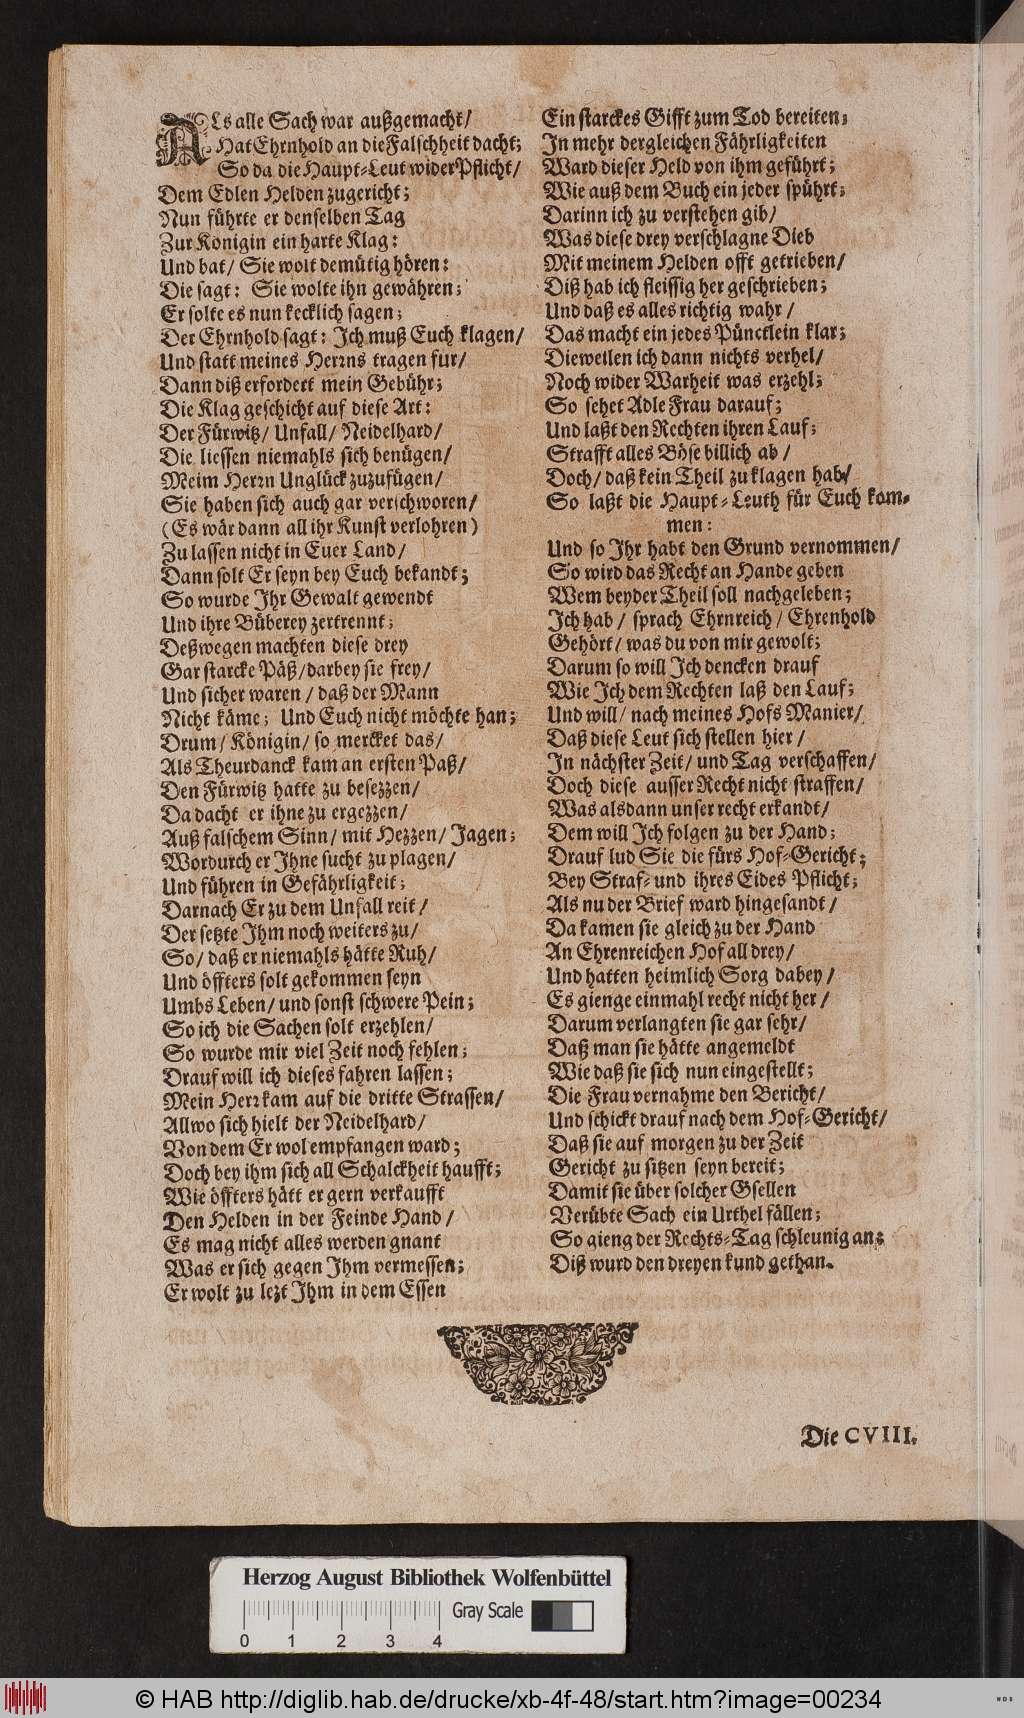 ALs alle Sach war außgemacht/
Hat Ehrnhold an die Falschheit dacht;
So da die Haupt-Leut wider Pflicht/
Dem Edlen Helden zugericht;
Nun führte er denselben Tag
Zur Königin ein harte Klag:
Und bat/ Sie wolt demütig hören:
Die sagt: Sie wolte ihn gewähren;
Er solte es nun kecklich sagen;
Der Ehrnhold sagt: Ich muß Euch klagen/
Und statt meines Herrns tragen für/
Dann diß erfordert mein Gebühr;
Die Klag geschicht auf diese Art:
Der Fürwitz/ Unfall/ Neidelhard/
Die liessen niemahls sich benügen/
Meim Herrn Unglück zuzufügen/
Sie haben sich auch gar verschworen/
(Es wär dann all ihr Kunst verlohren)
Zu lassen nicht in Euer Land/
Dann solt Er seyn bey Euch bekandt;
So wurde Ihr Gewalt gewendt
Und ihre Büberey zertrennt;
Deßwegen machten diese drey
Gar starcke Päß/ darbey sie frey/
Und sicher waren/ daß der Mann
Nicht käme; Und Euch nicht möchte han;
Drum/ Königin/ so mercket das/
Als Theurdanck kam an ersten Paß/
Den Fürwitz hatte zu besezzen/
Da dacht er ihne zu ergezzen/
Auß falschem Sinn/ mit Hezzen/ Jagen;
Wordurch er Ihne sucht zu plagen/
Und führen in Gefährligkeit;
Darnach Er zu dem Unfall reit/
Der setzte Ihm noch weiters zu/
So/ daß er niemahls hätte Ruh/
Und öffters solt gekommen seyn
Umbs Leben/ und sonst schwere Pein;
So ich die Sachen solt erzehlen/
So wurde mir viel Zeit noch fehlen;
Drauf will ich dieses fahren lassen;
Mein Herr kam auf die dritte Strassen/
Allwo sich hielt der Neidelhard/
Von dem Er wol empfangen ward;
Doch bey ihm sich all Schalckheit haufft;
Wie öffters hätt er gern verkaufft
Den Helden in der Feinde Hand/
Es mag nicht alles werden gnant
Was er sich gegen Ihm vermessen;
Er wolt zu lezt Ihm in dem Essen
Ein starckes Gifft zum Tod bereiten;
In mehr dergleichen Fährligkeiten
Ward dieser Held von ihm geführt;
Wie auß dem Buch ein jeder spührt;
Darinn ich zu verstehen gib/
Was diese drey verschlagne Dieb
Mit meinem Helden offt getrieben/
Diß hab ich fleissig her geschrieben;
Und daß es alles richtig wahr/
Das macht ein jedes Pünctlein klar;
Dieweilen ich dann nichts verhel/
Noch wider Warheit was erzehl;
So sehet Adle Frau darauf;
Und laßt den Rechten ihren Lauf;
Strafft alles Böse billich ab/
Doch/ daß kein Theil zu klagen hab/
So laßt die Haupt-Leuth für Euch kom-
men:
Und so Ihr habt den Grund vernommen/
So wird das Recht an Hande geben
Wem beyder Theil soll nachgeleben;
Ich hab/ sprach Ehrnreich/ Ehrenhold
Gehört/ was du von mir gewolt;
Darum so will Ich dencken drauf
Wie Ich dem Rechten laß den Lauf;
Und will/ nach meines Hofs Manier/
Daß diese Leut sich stellen hier/
In nächster Zeit/ und Tag verschaffen/
Doch diese ausser Recht nicht straffen/
Was alsdann unser recht erkandt/
Dem will Ich folgen zu der Hand;
Drauf lud Sie die fürs Hof-Gericht;
Bey Straf- und ihres Eides Pflicht;
Als nu der Brief ward hingesandt/
Da kamen sie gleich zu der Hand
An Ehrenreichen Hof all drey/
Und hatten heimlich Sorg dabey/
Es gienge einmahl recht nicht her/
Darum verlangten sie gar sehr/
Daß man sie hätte angemeldt
Wie daß sie sich nun eingestellt;
Die Frau vernahme den Bericht/
Und schickt drauf nach dem Hof-Gericht/
Daß sie auf morgen zu der Zeit
Gericht zu sitzen seyn bereit;
Damit sie über solcher Gsellen
Verübte Sach ein Urthel fällen;
So gieng der Rechts-Tag schleunig an;
Diß wurd den dreyen kund gethan.
Die CVIII.
Herzog August Bibliothek Wolfenbüttel
Gray Scale
0 1 2 3 4
© HAB http://diglib.hab.de/drucke/xb-4f-48/start.htm?image=00234
WDB